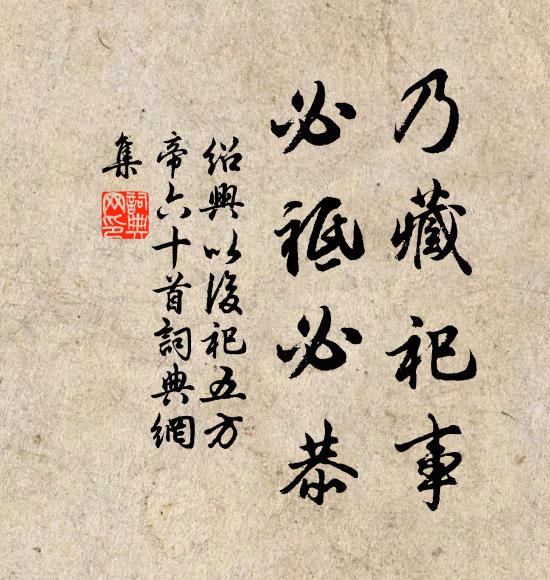 乃藏祀事
必祗必恭
紹興以後祀五方
帝六十首詞典網
集
詞典
网印